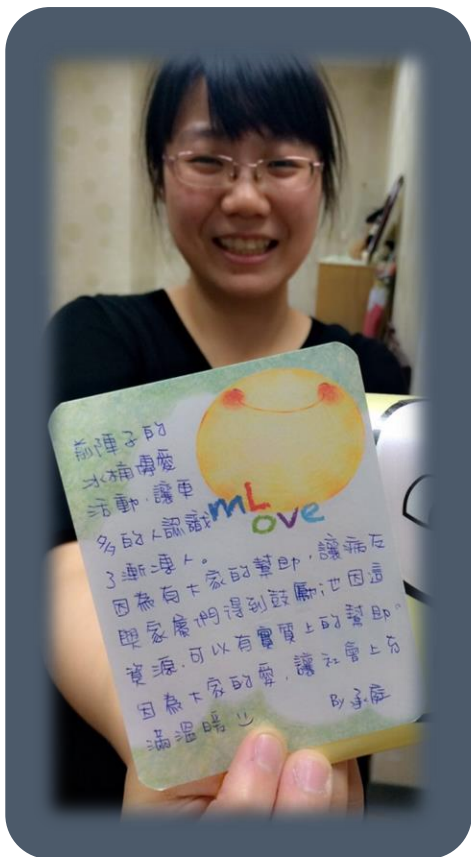 前陣子的
冰桶傳愛
活動,讓更
多的人認識
mLove
了漸凍人。
因為有大家的幫助,讓病友
與家屬們得到鼓勵也因這
資源,可以有實質上的幫助。
因為大家的愛,讓社會上充
滿溫暖
By 承庭